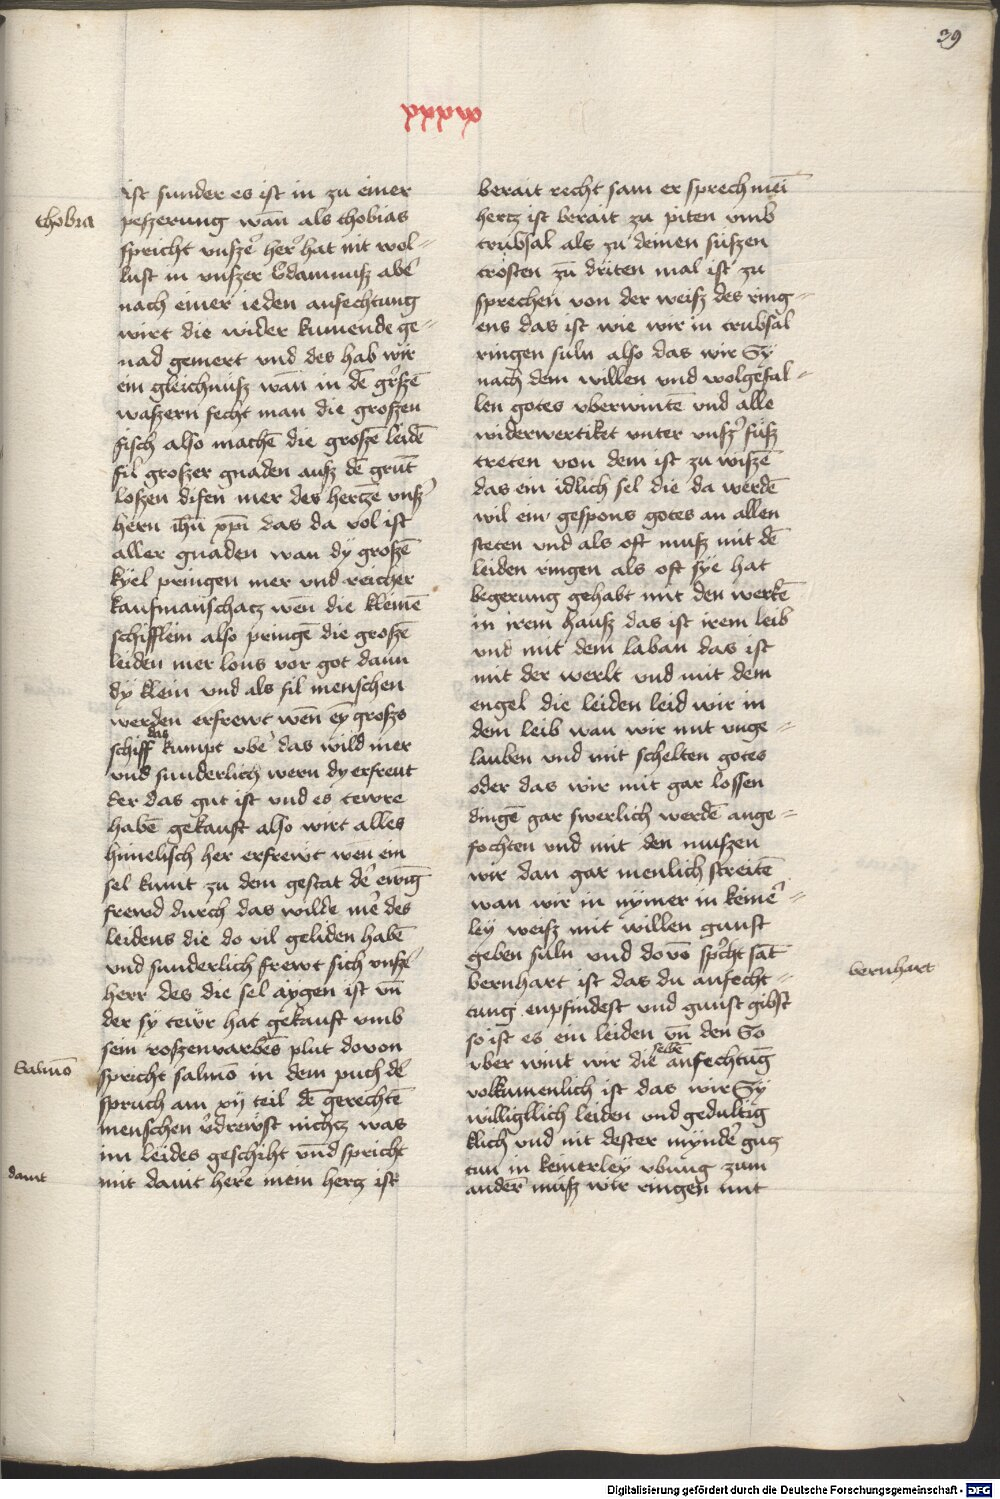 39
xxxix
ist sunder es ist in zu einer
thobia
peszerung wañ als thobias
spricht vnszẽ her hat nit wol-
lust in vnszer vdamnusz abẽ
nach einer ieden anfechtung
wirt die wider kumende ge-
nad gemert vnd des hab wir
ein gleichnusz wañ in dẽ grszẽ
waszern fecht man die groszen
fisch also machẽ die groszẽ leidẽ
fil groszer gnaden ausz dẽ grũt
loszen disen mer des hertzẽ vnsz
hern ihũ xpi das da vol ist
aller gnaden wan dÿ groszẽ
kyel pringen mer vnd reicher
kaufmañschacz weñ die kleinẽ
schifflein also pringẽ die groszẽ
leiden mer lons vor got dann
dÿ klein vnd als fil menschen
werden erfrewt weñ eÿ grosz
schiff das kumpt vbẽ das wild mer
vnd sunderlich wern dy erfreut
der das gut ist vnd es tewre
habẽ gekauft also wirt alles
himelisch her erfrewt wen ein
sel kumt zu dem gestat dẽ ewig
frewd durch das wilde mẽ des
leidens die do vil geliden habẽ
vnd sunderlich frewt sich vnszẽ
herr des die sel aÿgen ist vñ
der sÿ tewr hat gekauft vmb
sein roszenvarbes plut dovon
Salmõ
spricht salmõ in dem puch dẽ
spruch am xij teil dẽ gerechtẽ
menschen vdrewst nichcz was
im leides geschiht vnd spricht
damit
mit damit here mein hercz ist
berait recht sam er sprech mei
hertz ist berait zu piten vmb
trubsal als zu deinen süszen
trosten zũ driten mal ist zu
sprechen von der weisz des ring-
ens das ist wie wir in trubsal
ringen suln also das wir Sÿ
nach dem willen vnd wolgefal-
len gotes vberwintẽ vnd alle
widerwertiket vnter vnsz füsz
treten von dem ist zu wiszẽ
das ein idlich sel die da werdẽ
wil ein gespons gotes an allen
steten vnd als oft musz mit dẽ
leiden ringen als oft sÿe hat
begerung gehabt mit den werckẽ
in irem hausz das ist irem leib
vnd mit dem laban das ist
mit der werlt vnd mit dem
engel die leiden leid wir in
dem leib wan wir mit vnge-
lauben vnd mit schelten gotes
oder das wir mit gar lossen
dingẽ gar swerlich werdẽ ange-
fochten vnd mit den muszen
wir dan gar menlich streitẽ
wan wir in nÿmer in keinẽ-
leÿ weisz mit willen gunst
geben suln vnd dovõ spcht sãt
bernhart
bernhart ist das du anfecht-
tung enpfindest vnd gunst gibst
so ist es ein leiden vñ den So
vber wint wir die selbẽ anfechtũg
volkumenlich ist das wir Sÿ
willigllich leiden vnd gedultig
klich vnd nit dester mÿnde gucz
tun in keinerleÿ vbung zum
andern musz wir ringen mit
Digitalisierung gefördert durch die Deutsche Forschungsgemeinschaft - DFG